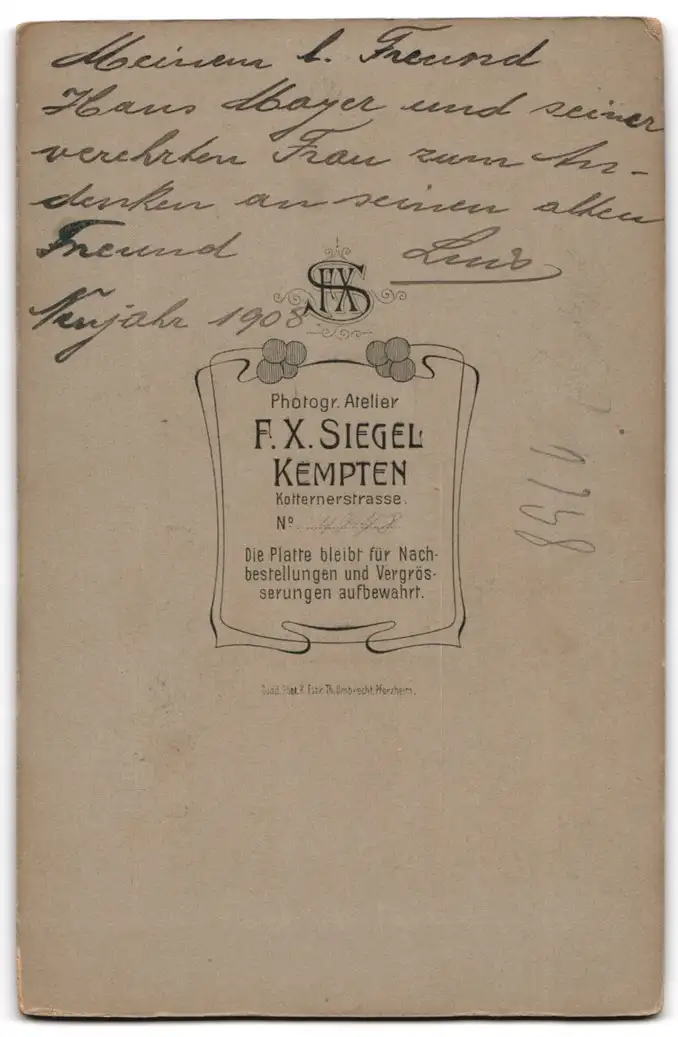 Meinem l. Freund
Hans Mayer und seiner
verehrten Frau zum An-
denken an seinen alten
Freund Luis
Neujahr 1908
FXS
Photogr. Atelier
F. X. SIEGEL
KEMPTEN
Kotternerstrasse.
Nº
Die Platte bleibt für Nach-
bestellungen und Vergrös-
serungen aufbewahrt.
Th. Umbrecht, Pforzheim.